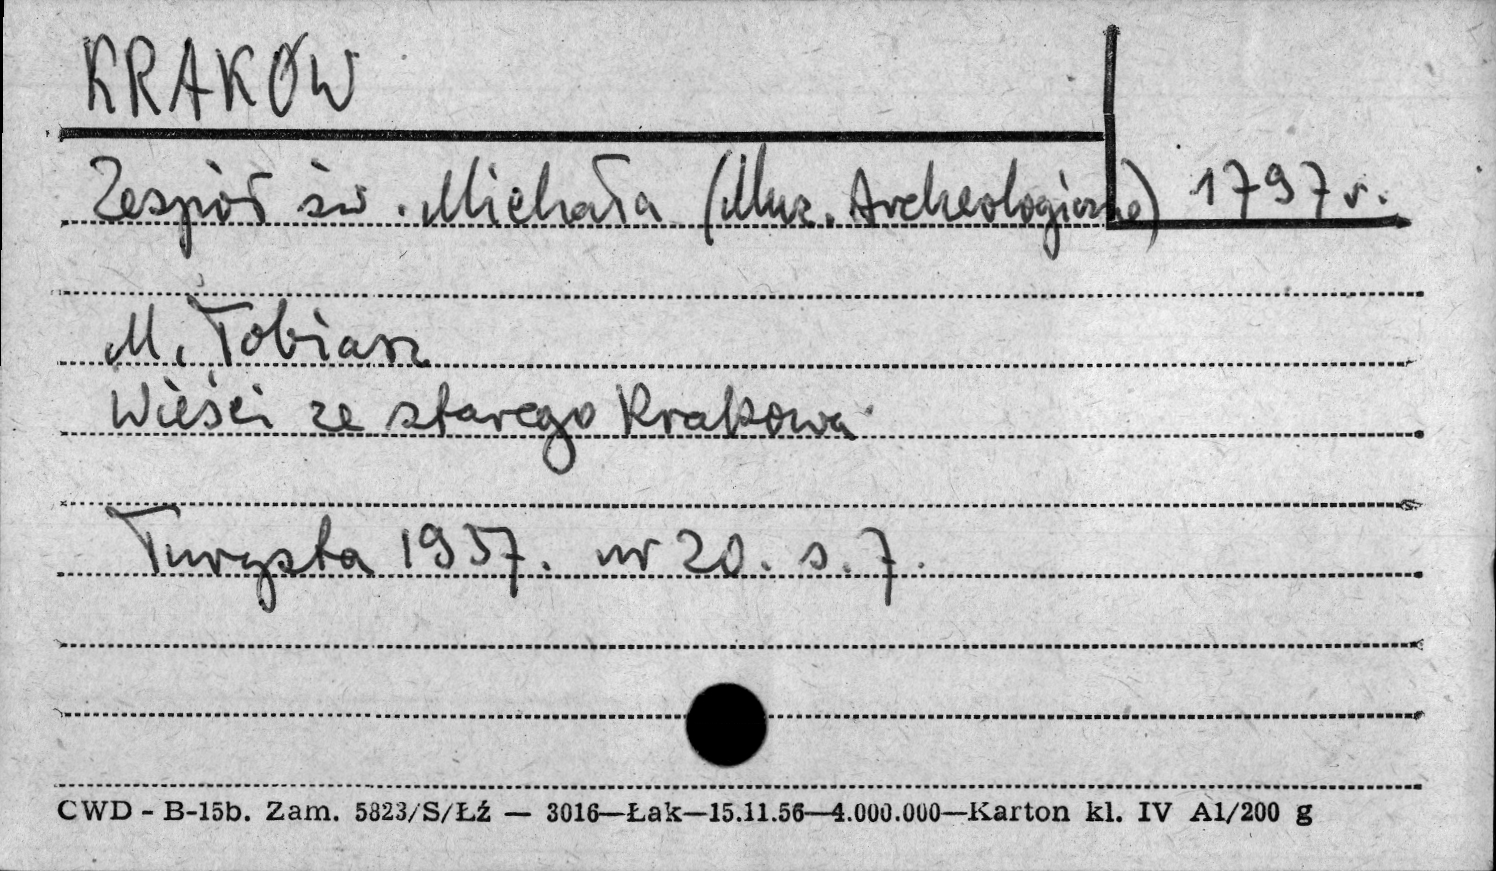 KRAKÓW
Zespół św. Michała (Muz. Archeologiczne) 1797 r.
M. Tobiasz
Wieści ze starego Krakowa
Turysta 1957. nr 20. s. 7.
CWD - B-15b. Zam. 5823/S/Łź — 3016—Łak—15.11.56—4.000.000—Karton kl. IV A1/200 g